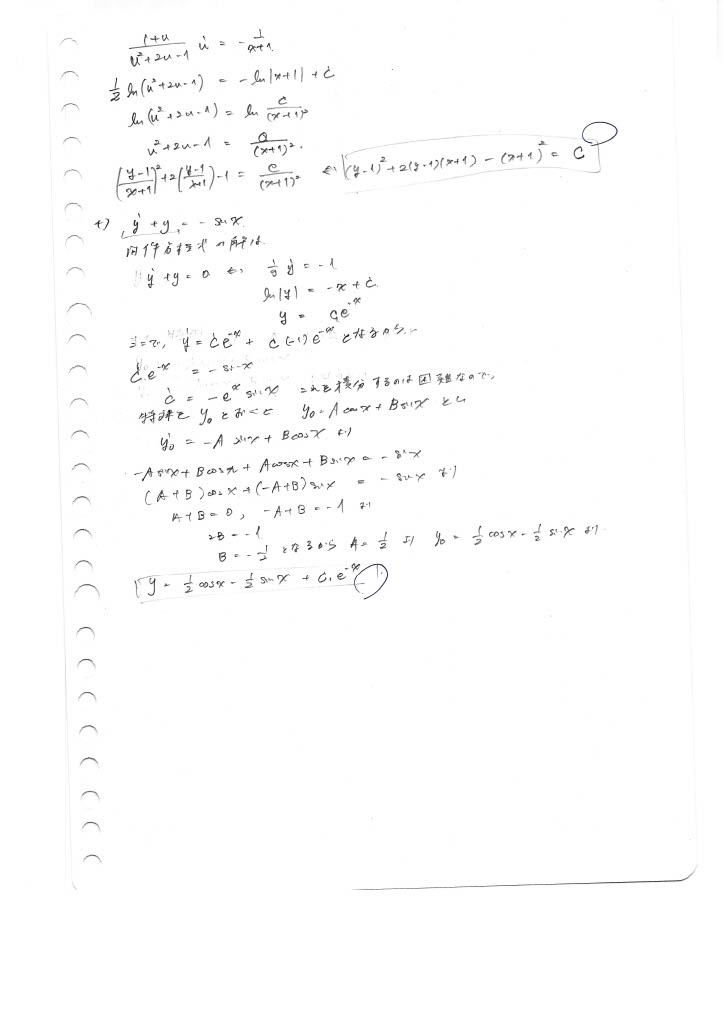 (1+u)/(u²+2u-1) u̇ = -1/(x+1).
1/2 ln(u²+2u-1) = -ln|x+1| + Ċ
ln(u²+2u-1) = ln C/(x+1)²
u²+2u-1 = C/(x+1)².
((y-1)/(x+1))²+2((y-1)/(x+1))-1 = C/(x+1)² ⇔ (y-1)²+2(y-1)(x+1)-(x+1)² = C
ẏ + y = -sin x.
同伴方程式の解は
ẏ + y = 0 ⇔ 1/y ẏ = -1
ln|y| = -x + C
y = Ce^{-x}
ここで, ẏ = Ċe^{-x} + C(-1)e^{-x} となるから
Ċe^{-x} = -sin x
Ċ = -e^{x} sin x これを積分するのは困難なので,
特殊解を y₀ とおくと y₀ = A cos x + B sin x とし
ẏ₀ = -A sin x + B cos x より
-A sin x + B cos x + A cos x + B sin x = -sin x
(A+B) cos x + (-A+B) sin x = -sin x より
A+B = 0, -A+B = -1 より
2B = -1
B = -1/2 となるから A = 1/2 より y₀ = 1/2 cos x - 1/2 sin x より
y = 1/2 cos x - 1/2 sin x + C₁e^{-x}